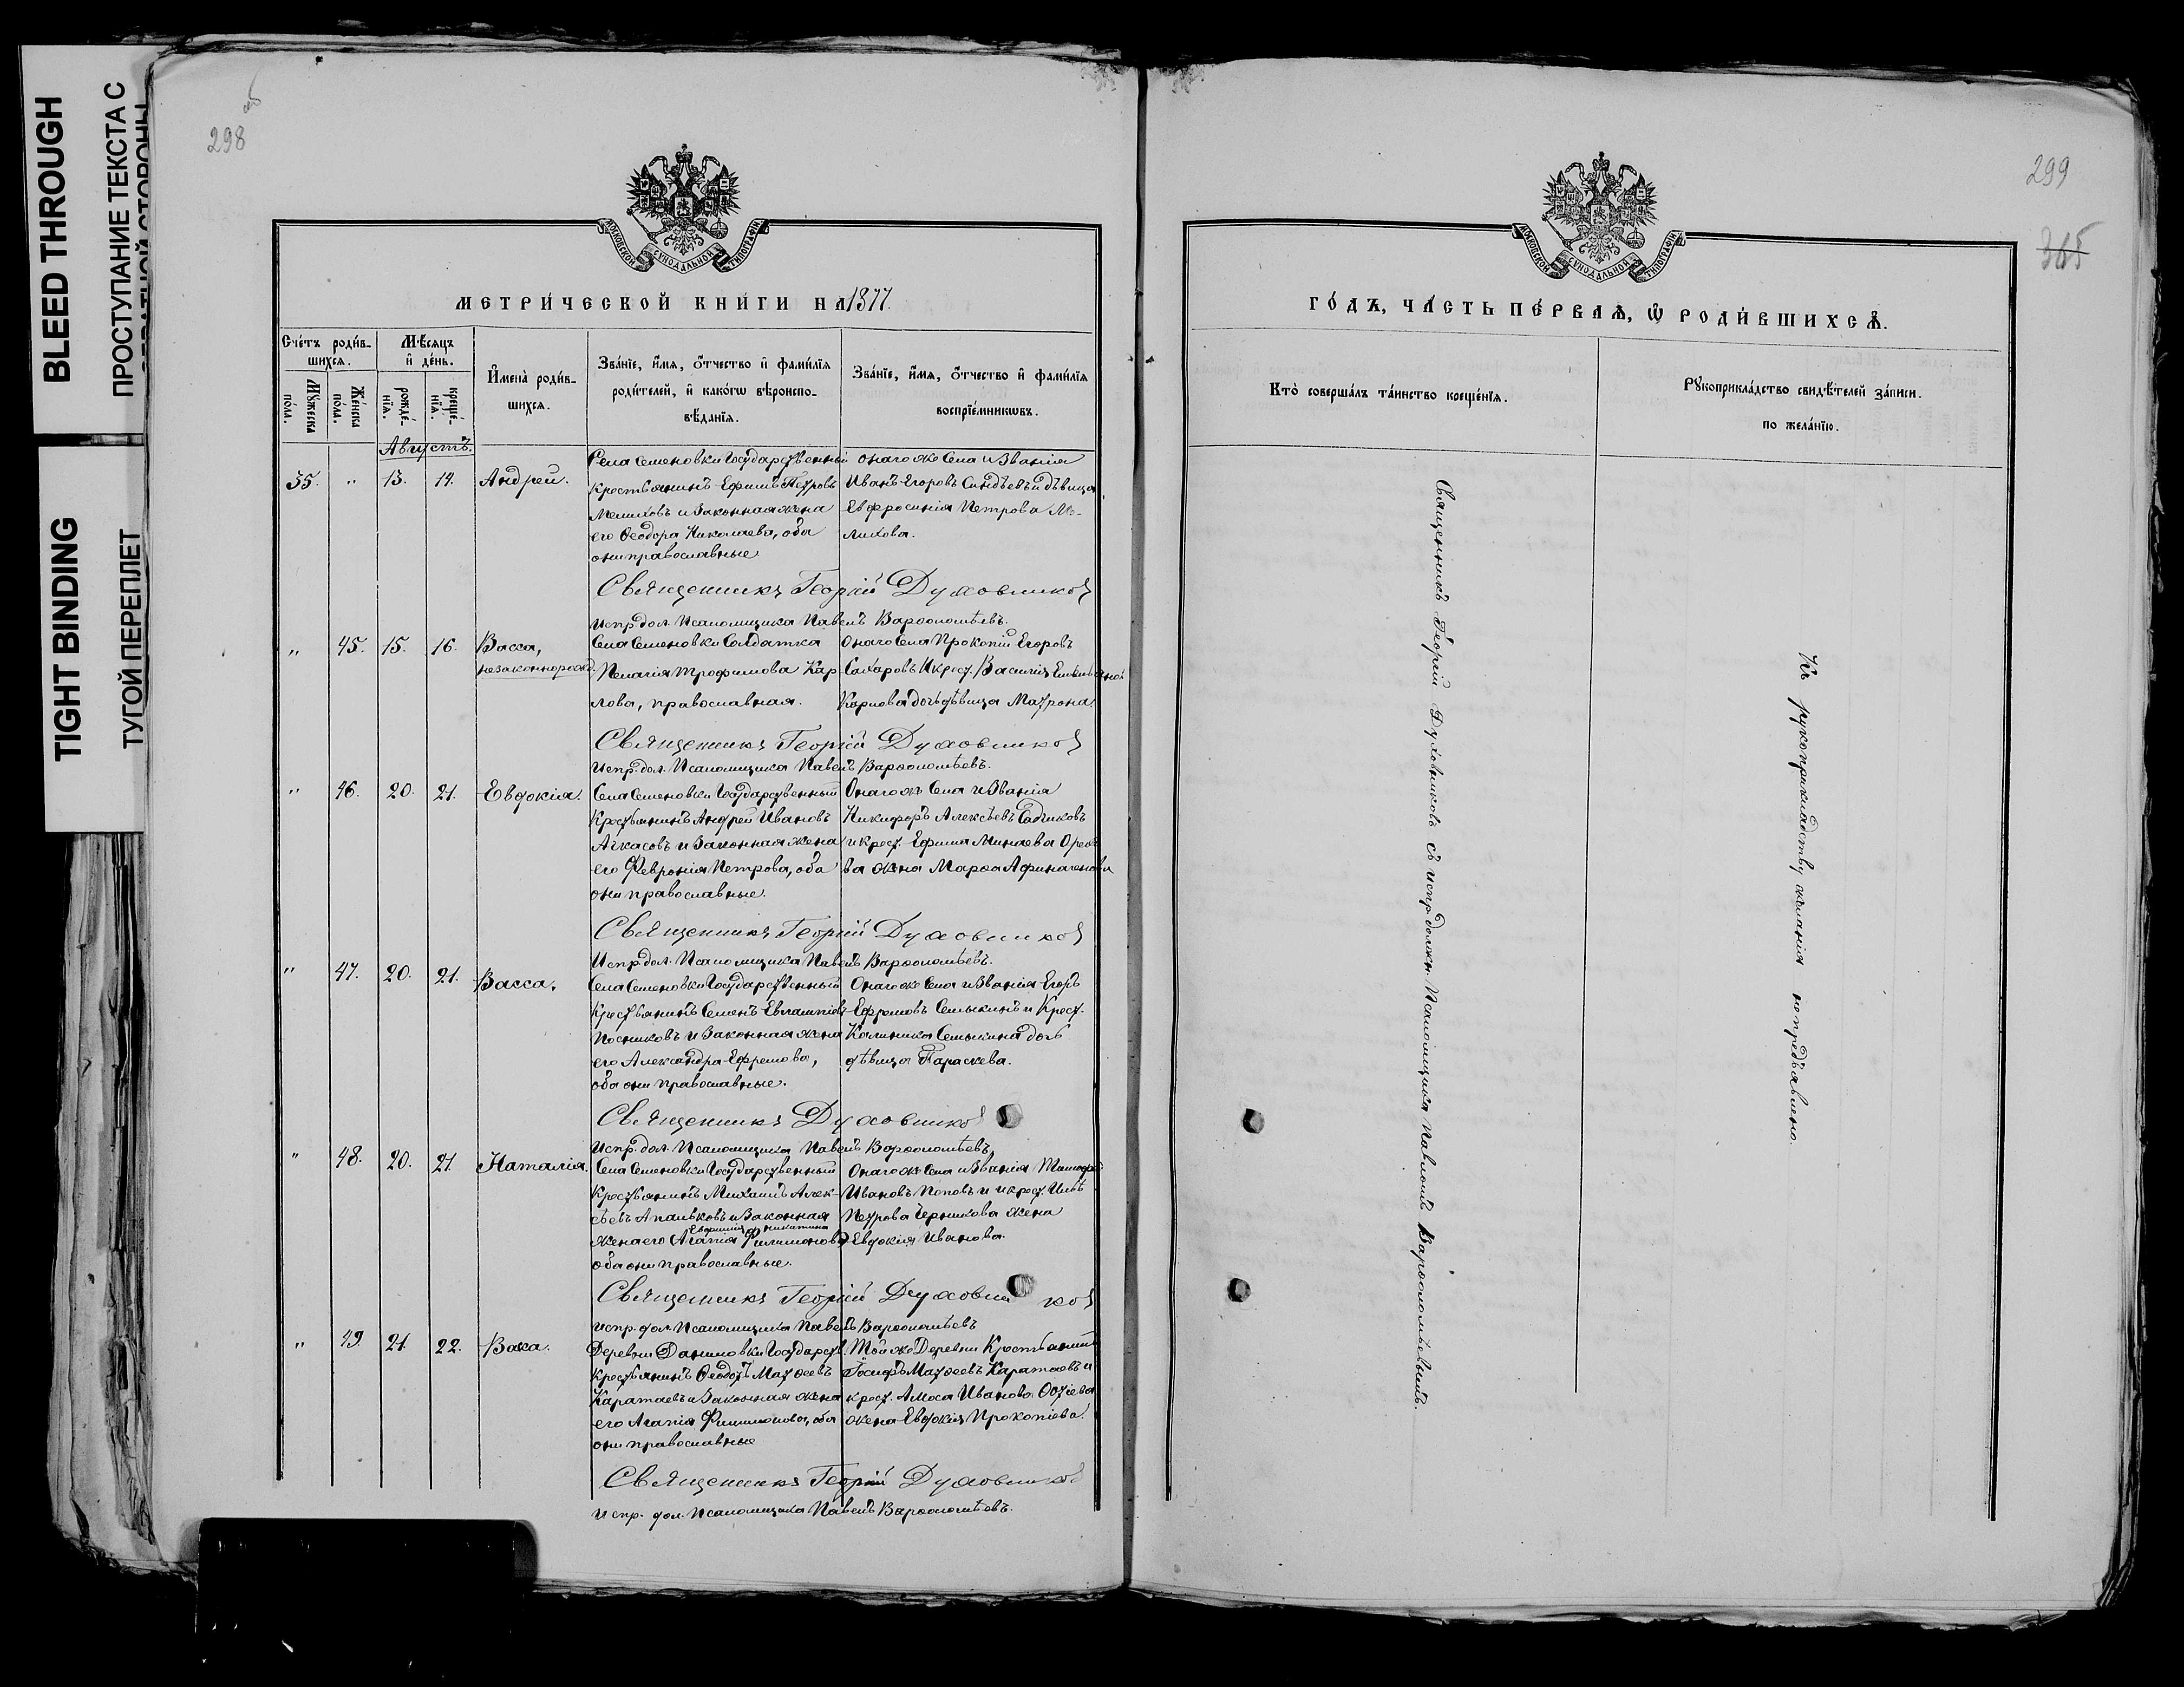 BLEED THROUGH
ПРОСТУПАНИЕ ТЕКСТА С
ОБРАТНОЙ СТОРОНЫ
TIGHT BINDING
ТУГОЙ ПЕРЕПЛЕТ
298
об
МОСКОВСКОЙ СѴНОДАЛЬНОЙ ТИПОГРАФІИ
МЕТРИ́ЧЕСКОЙ КНИ́ГИ НА 1877.
Сче́тъ роди́в-
шихся.
Мѣ́сяцъ
и҆ де́нь.
Мꙋжеска по́ла.
Же́нска по́ла.
рожде́-
нїѧ.
креще́-
нїѧ.
И҆мена̀ роди́в-
шихся.
Зва́нїе, и҆́мѧ, ѻ҆́тчество и҆ фами́лїѧ
роди́телей, и҆ како́гѡ вѣроиспо-
вѣ́данїѧ.
Зва́нїе, и҆́мѧ, ѻ҆́тчество и҆ фами́лїѧ
воспрїе́мникѡвъ.
Августъ.
35. " 13. 14. Андрей.
Села Семеновки Государственный
крестьянинъ Ефимъ Петровъ
Мелиховъ и законная жена
его Ѳеодора Николаева, оба
они православные
онаго же Села и Званія
Иванъ Егоровъ и дѣвица
Евфросинія Петрова Ме-
лихова.
Священникъ Георгій Духовников
Испр. дол. Псаломщика Павелъ Варѳоломѣевъ.
" 45. 15. 16. Васса,
незаконнорожд.
Села Семеновки Солдатка
Пелагія Трофимова Кар-
пова, православная.
Онаго Села Прокопій Егоровъ
Сахаровъ и крест. Василія
Карпова дочь дѣвица Матрона
Священникъ Георгій Духовников
Испр. дол. Псаломщика Павелъ Варѳоломѣевъ.
" 46. 20. 21. Евдокія.
Села Семеновки Государственный
Крестьянинъ Андрей Ивановъ
Ачкасовъ и Законная жена
его Февронія Петрова, оба
они православные.
Онаго же Села и Званія
Никифоръ Алексѣевъ Садчиковъ
и крест. Ефима Минаева Орехо-
ва жена Марѳа Афиногенова
Священникъ Георгій Духовников
Испр. дол. Псаломщика Павелъ Варѳоломѣевъ.
" 47. 20. 21. Васса.
Села Семеновки Государственный
Крестьянинъ Семенъ Евлампіевъ
Посниковъ и Законная жена
его Александра Ефремова,
оба они православные.
Онаго же Села и Званія Егоръ
Ефремовъ Семыкинъ и Крест.
Калиника Семыкина дочь
дѣвица Параскева.
Священникъ Духовников
Испр. дол. Псаломщика Павелъ Варѳоломѣевъ
" 48. 20. 21. Наталія.
Села Семеновки Государственный
Крестьянинъ Михаилъ Алек-
сѣевъ Апальковъ и Законная
Никитина
жена его Агапія Филимонова
оба они православные.
Онаго же Села и Званія Тимофей
Ивановъ Поповъ и крест. Ильи
Петрова Черникова жена
Евдокія Иванова.
Священникъ Георгій Духовников
Испр. дол. Псаломщика Павелъ Варѳоломѣевъ
" 49. 21. 22. Васса.
Деревни Даниловки Государств.
крестьянинъ Ѳеодотъ Матѳеевъ
Каратаевъ и Законная жена
его Агапія Филимонова, оба
они православные
Той же Деревни Крестьянинъ
Іосифъ Матѳеевъ Каратаевъ и
крест. Амоса Иванова
жена Евдокія Прокопіева.
Священникъ Георгій Духовников
Испр. дол. Псаломщика Павелъ Варѳоломѣевъ.
299
315
МОСКОВСКОЙ СѴНОДАЛЬНОЙ ТИПОГРАФІИ
ГО́ДЪ, ЧА́СТЬ ПЕ́РВАѦ, Ѽ РОДИ́ВШИХСѦ.
Кто̀ соверша́лъ та́инство креще́нїѧ.
Рꙋкоприкла́дство свидѣ́телей за́писи.
по жела́нїю.
Священникъ Георгій Духовниковъ съ испр. должн. Псаломщика Павломъ Варѳоломѣевымъ.
Къ рукоприкладству желанія не предъявлено.